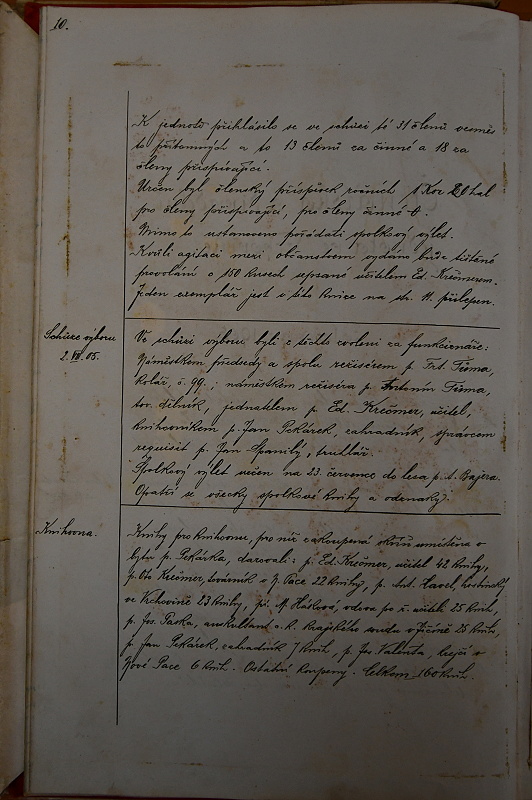 10.
K jednotě přihlásilo se ve schůzi té 31 členů vesměs
to přítomných a to 13 členů za činné a 18 za
členy přispívající.
Určen byl členský příspěvek ročních 1 Kor 20 hal
pro členy přispívající, pro členy činné 0.
Mimo to ustanoveno pořádati spolkový výlet.
Kvůli agitaci mezi občanstvem vydáno bude tištěné
provolání o 150 kusech sepsané učitelem Ed. Krečmerem.
Jeden exemplář jest v této knize na str. 11. přilepen.
Schůze výboru
2. VII. 05.
Ve schůzi výboru byli z těchto zvoleni za funkcionáře:
Náměstkem předsedy a spolu režisérem p. Frt. Tůma,
kolář, č. 99.; náměstkem režiséra p. Antonín Tůma,
tov. dělník, jednatelem p. Ed. Krečmer, učitel,
knihovníkem p. Jan Pekárek, zahradník, správcem
requisit p. Jan Spanilý, truhlář.
Spolkový výlet určen na 23. července do lesa p. A. Bajera.
Opatří se všecky spolkové knihy a odznaky.
Knihovna.
Knihy pro knihovnu, pro niž zakoupená skříň umístěna v
bytě p. Pekárka, darovali: p. Ed. Krečmer, učitel 42 knihy,
p. Oto Krečmer, továrník v N. Pace 22 knihy, p. Ant. Havel, hostinský
ve Vrchovině 23 knihy, pí. M. Hášková, vdova po ř. učiteli 25 knih,
p. Jos. Paska, auskultant c. k. krajského soudu v Jičíně 25 knih,
p. Jan Pekárek, zahradník 7 knih, p. Jos. Valenta, krejčí v
Nové Pace 6 knih. Ostatní koupeny. Celkem 160 knih.